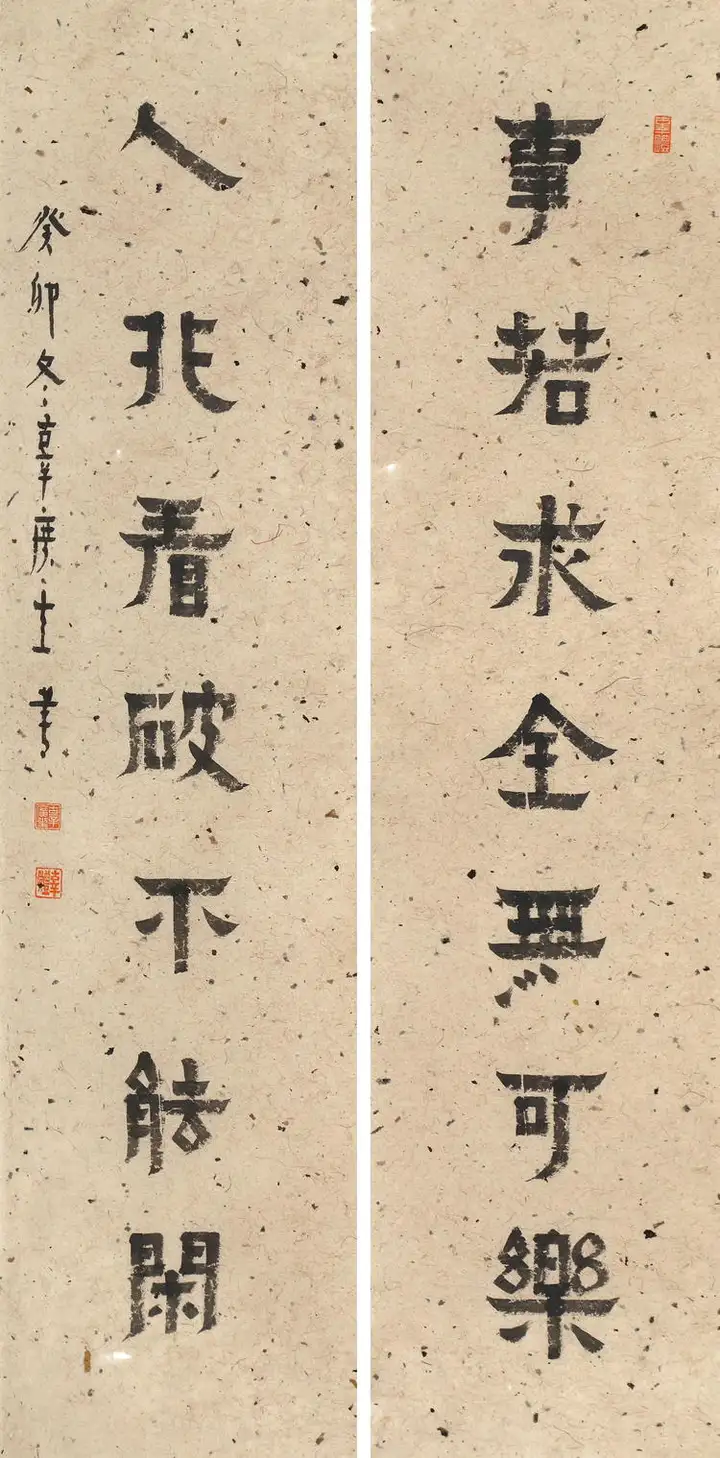 事若求全無可樂
人非看破不能閑
癸卯冬章慶生書